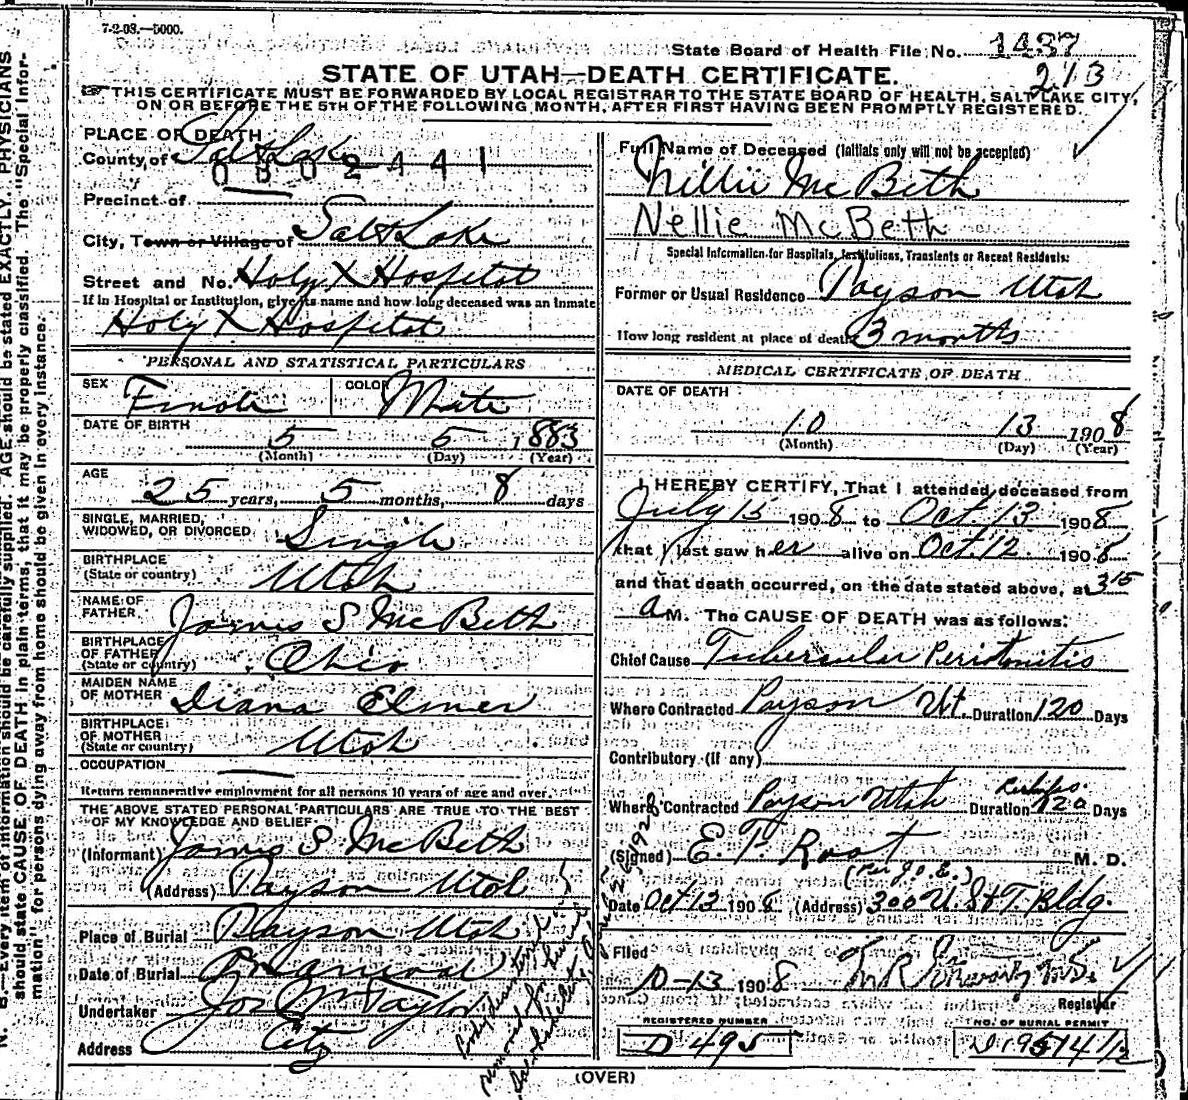 7-2-03.—5000.
State Board of Health File No. 1437
213
STATE OF UTAH—DEATH CERTIFICATE.
THIS CERTIFICATE MUST BE FORWARDED BY LOCAL REGISTRAR TO THE STATE BOARD OF HEALTH, SALT LAKE CITY,
ON OR BEFORE THE 5TH OF THE FOLLOWING MONTH, AFTER FIRST HAVING BEEN PROMPTLY REGISTERED.
PLACE OF DEATH
County of Salt Lake
0302441
Precinct of
City, Town or Village of Salt Lake
Street and No. Holy X Hospital
If in Hospital or Institution, give its name and how long deceased was an inmate
Holy X Hospital
PERSONAL AND STATISTICAL PARTICULARS
SEX Female COLOR White
DATE OF BIRTH
5 5 1883
(Month) (Day) (Year)
AGE
25 years, 5 months, 8 days
SINGLE, MARRIED,
WIDOWED, OR DIVORCED Single
BIRTHPLACE
(State or country) Utah
NAME OF
FATHER James S McBeth
BIRTHPLACE
OF FATHER
(State or country) Ohio
MAIDEN NAME
OF MOTHER Diana Elmer
BIRTHPLACE
OF MOTHER
(State or country) Utah
OCCUPATION
Return remunerative employment for all persons 10 years of age and over.
THE ABOVE STATED PERSONAL PARTICULARS ARE TRUE TO THE BEST
OF MY KNOWLEDGE AND BELIEF
(Informant) James S McBeth
(Address) Payson Utah
Place of Burial Payson Utah
Date of Burial
Undertaker Jos Wm Taylor
Address City
body disinterred
removed for burial
Full Name of Deceased (Initials only will not be accepted)
Nillie McBeth
Nellie McBeth
Special Information for Hospitals, Institutions, Transients or Recent Residents:
Former or Usual Residence Payson Utah
How long resident at place of death 3 months
MEDICAL CERTIFICATE OF DEATH
DATE OF DEATH
10 13 1908
(Month) (Day) (Year)
I HEREBY CERTIFY, That I attended deceased from
July 15 1908 to Oct. 13 1908
that I last saw her alive on Oct. 12 1908
and that death occurred, on the date stated above, at 315
a M. The CAUSE OF DEATH was as follows:
Chief Cause Tubercular Peritonitis
Where Contracted Payson Ut. Duration 120 Days
Contributory (if any)
Where Contracted Payson Utah Duration 120 Days
(Signed) E. F. Root M. D.
(Per J.O.E.)
Date Oct 13 1908 (Address) 300 U.S&T. Bldg.
Filed
10-13 1908
Registrar
REGISTERED NUMBER NO. OF BURIAL PERMIT
D 495
(OVER)
N. B.—Every item of information should be carefully supplied. AGE should be stated EXACTLY. PHYSICIANS
should state CAUSE OF DEATH in plain terms, that it may be properly classified. The "Special Infor-
mation" for persons dying away from home should be given in every instance.